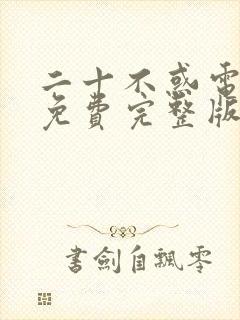 二十不或電
免費完整版
書劍自飄零